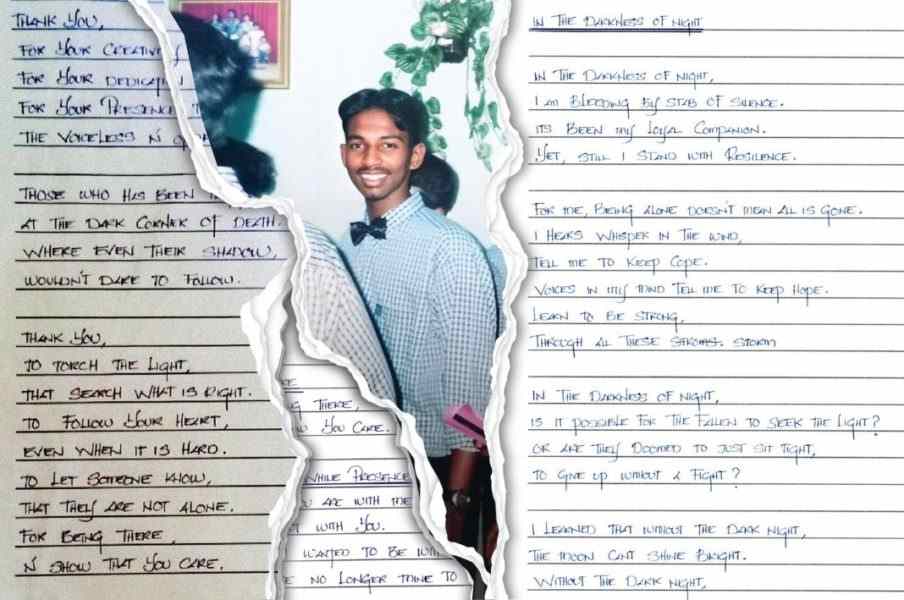 THANK YOU,
FOR YOUR
FOR YOUR
FOR YOUR PRESENCE
THE VOICELESS N'
THOSE WHO HAS BEEN
AT THE DARK CORNER OF DEATH.
WHERE EVEN THEIR SHADOW,
WOULDN'T DARE TO FOLLOW.
THANK YOU,
TO TORCH THE LIGHT,
THAT SEARCH WHAT IS RIGHT.
TO FOLLOW YOUR HEART,
EVEN WHEN IT IS HARD.
TO LET SOMEONE KNOW,
THAT THEY ARE NOT ALONE.
FOR BEING THERE,
N' SHOW THAT YOU CARE.
THERE,
YOU CARE.
WHILE PRESENCE
ARE WITH ME
WITH YOU.
WANTED TO BE
NO LONGER MINE TO
IN THE DARKNESS OF NIGHT
IN THE DARKNESS OF NIGHT,
I AM BLEEDING BY STAB OF SILENCE.
ITS BEEN MY LOYAL COMPANION.
YET, STILL I STAND WITH RESILENCE.
FOR ME, BEING ALONE DOESN'T MEAN ALL IS GONE.
I HEARS WHISPER IN THE WIND,
TELL ME TO KEEP COPE.
VOICES IN MY MIND TELL ME TO KEEP HOPE.
LEARN TO BE STRONG,
THROUGH ALL THESE STROMS. STORM
IN THE DARKNESS OF NIGHT,
IS IT POSSIBLE FOR THE FALLEN TO SEEK THE LIGHT?
OR ARE THEY DOOMED TO JUST SIT TIGHT,
TO GIVE UP WITHOUT A FIGHT?
I LEARNED THAT WITHOUT THE DARK NIGHT,
THE MOON CANT SHINE BRIGHT.
WITHOUT THE DARK NIGHT,